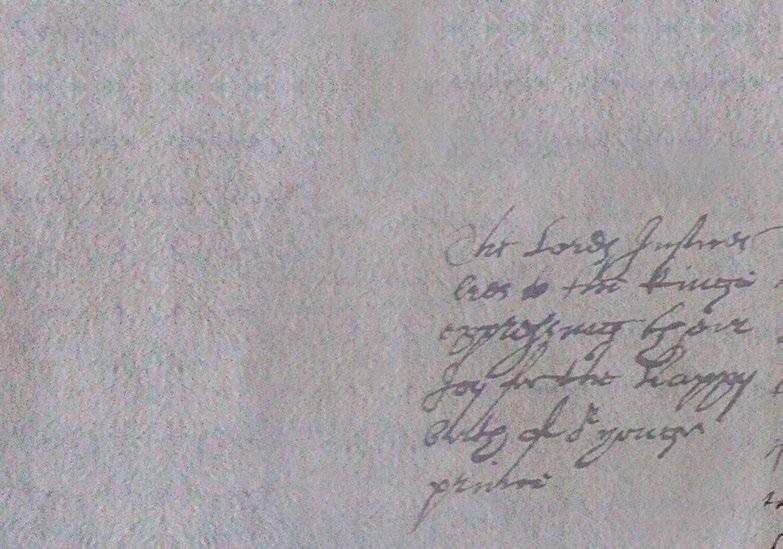 The Lords Justices
lres to the kinge
expressing their
Joy for the happy
birth of ye younge
prince